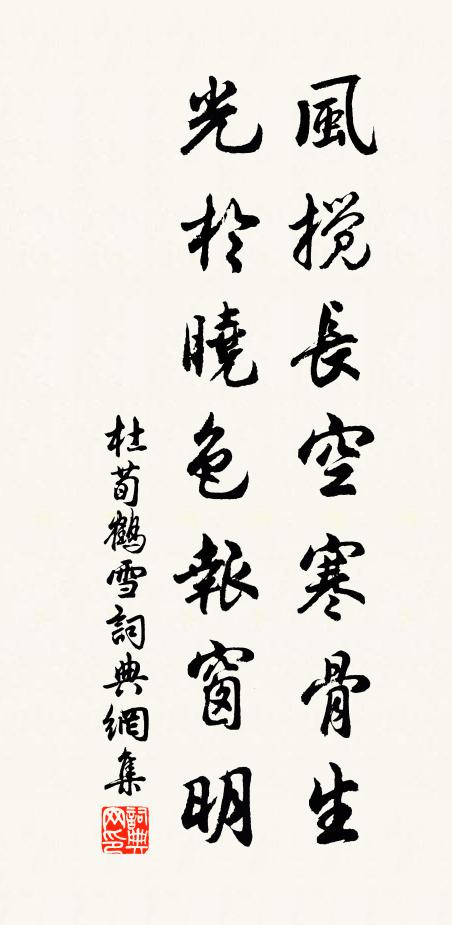 風攪長空寒骨生
光於曉色報窗明
杜荀鶴雪詞典網集
詞典网印